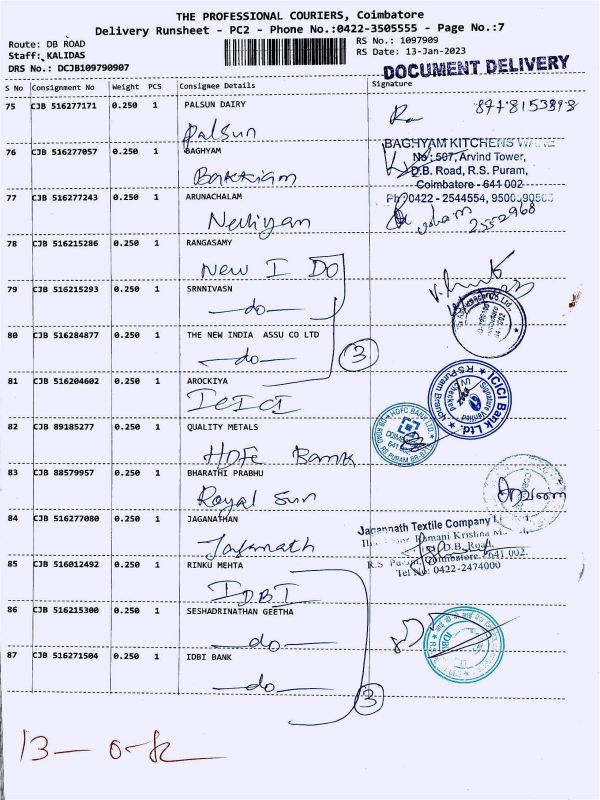 THE PROFESSIONAL COURIERS, Coimbatore
Delivery Runsheet - PC2 - Phone No.:0422-3505555 - Page No.:7
Route: DB ROAD
RS No.: 1097909
Staff: KALIDAS
RS Date: 13-Jan-2023
DRS No.: DCJB109790907
DOCUMENT DELIVERY
S No Consignment No Weight PCS Consignee Details Signature
75 CJB 516277171 0.250 1 PALSUN DAIRY
Palsun
76 CJB 516277057 0.250 1 BAGHYAM
BAGHYAM KITCHENS WARE
No : 507, Arvind Tower,
D.B. Road, R.S. Puram,
Coimbatore - 641 002
Bakkiam
77 CJB 516277243 0.250 1 ARUNACHALAM
Ph : 0422 - 2544554,
78 CJB 516215286 0.250 1 RANGASAMY
New I DO
79 CJB 516215293 0.250 1 SRNNIVASN
-do-
80 CJB 516284877 0.250 1 THE NEW INDIA ASSU CO LTD
-do-
3
81 CJB 516204602 0.250 1 AROCKIYA
ICICI
ICICI Bank Ltd.
R S Puram Branch
Signature Verified
82 CJB 89185277 0.250 1 QUALITY METALS
HDFC BANK LTD.
HDFC Bank
83 CJB 88579957 0.250 1 BHARATHI PRABHU
Royal Sun
84 CJB 516277080 0.250 1 JAGANATHAN
Jagannath Textile Company
Ramani Krishna
D.B. Road,
Coimbatore 641 002.
Tel No: 0422-2474000
85 CJB 516012492 0.250 1 RINKU MEHTA
IDBI
86 CJB 516215300 0.250 1 SESHADRINATHAN GEETHA
-do-
87 CJB 516271504 0.250 1 IDBI BANK
-do-
3